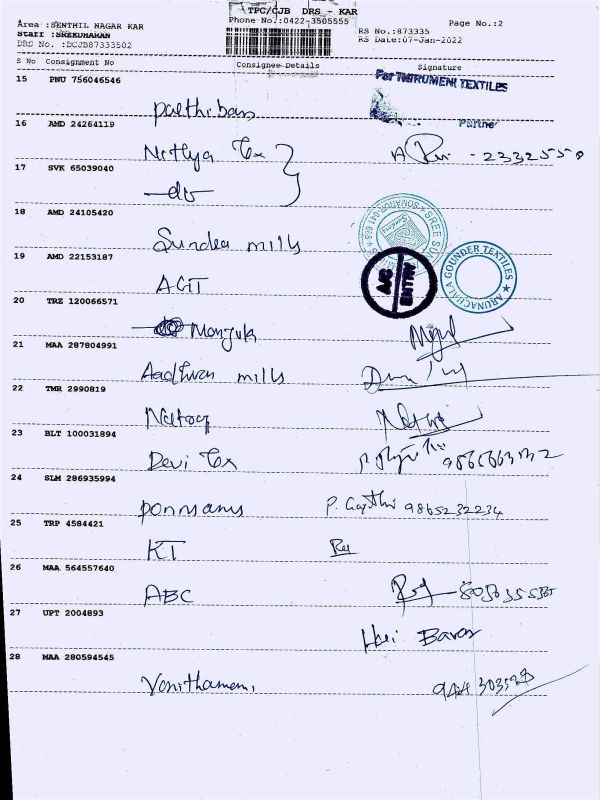 TPC/CJB DRS - KAR
Area :SENTHIL NAGAR KAR
Phone No.:0422-3505555
Page No.:2
Staff :SREEKUMARAN
RS No.:873335
DRS No. :DCJB87333502
RS Date:07-Jan-2022
S No Consignment No Consignee Details Signature
15 PNU 756046546
For THIRUMENI TEXTILES
Parthiban
Partner
16 AMD 24264119
Nithya Tex
A 2332550
17 SVK 65039040
-do-
18 AMD 24105420
Surdea mills
19 AMD 22153187
AGT
A/C ENTRY
ARUNACHALA GOUNDER TEXTILES
20 TRZ 120066571
Monjuk
21 MAA 287804991
Aadhvan mills
22 TMR 2990819
Natraj
23 BLT 100031894
Devi Tex
24 SLM 286935994
Ponnsams P. Gayathri 9865232234
25 TRP 4584421
KT
26 MAA 564557640
ABC
27 UPT 2004893
Hari Baran
28 MAA 280594545
Vanithamani